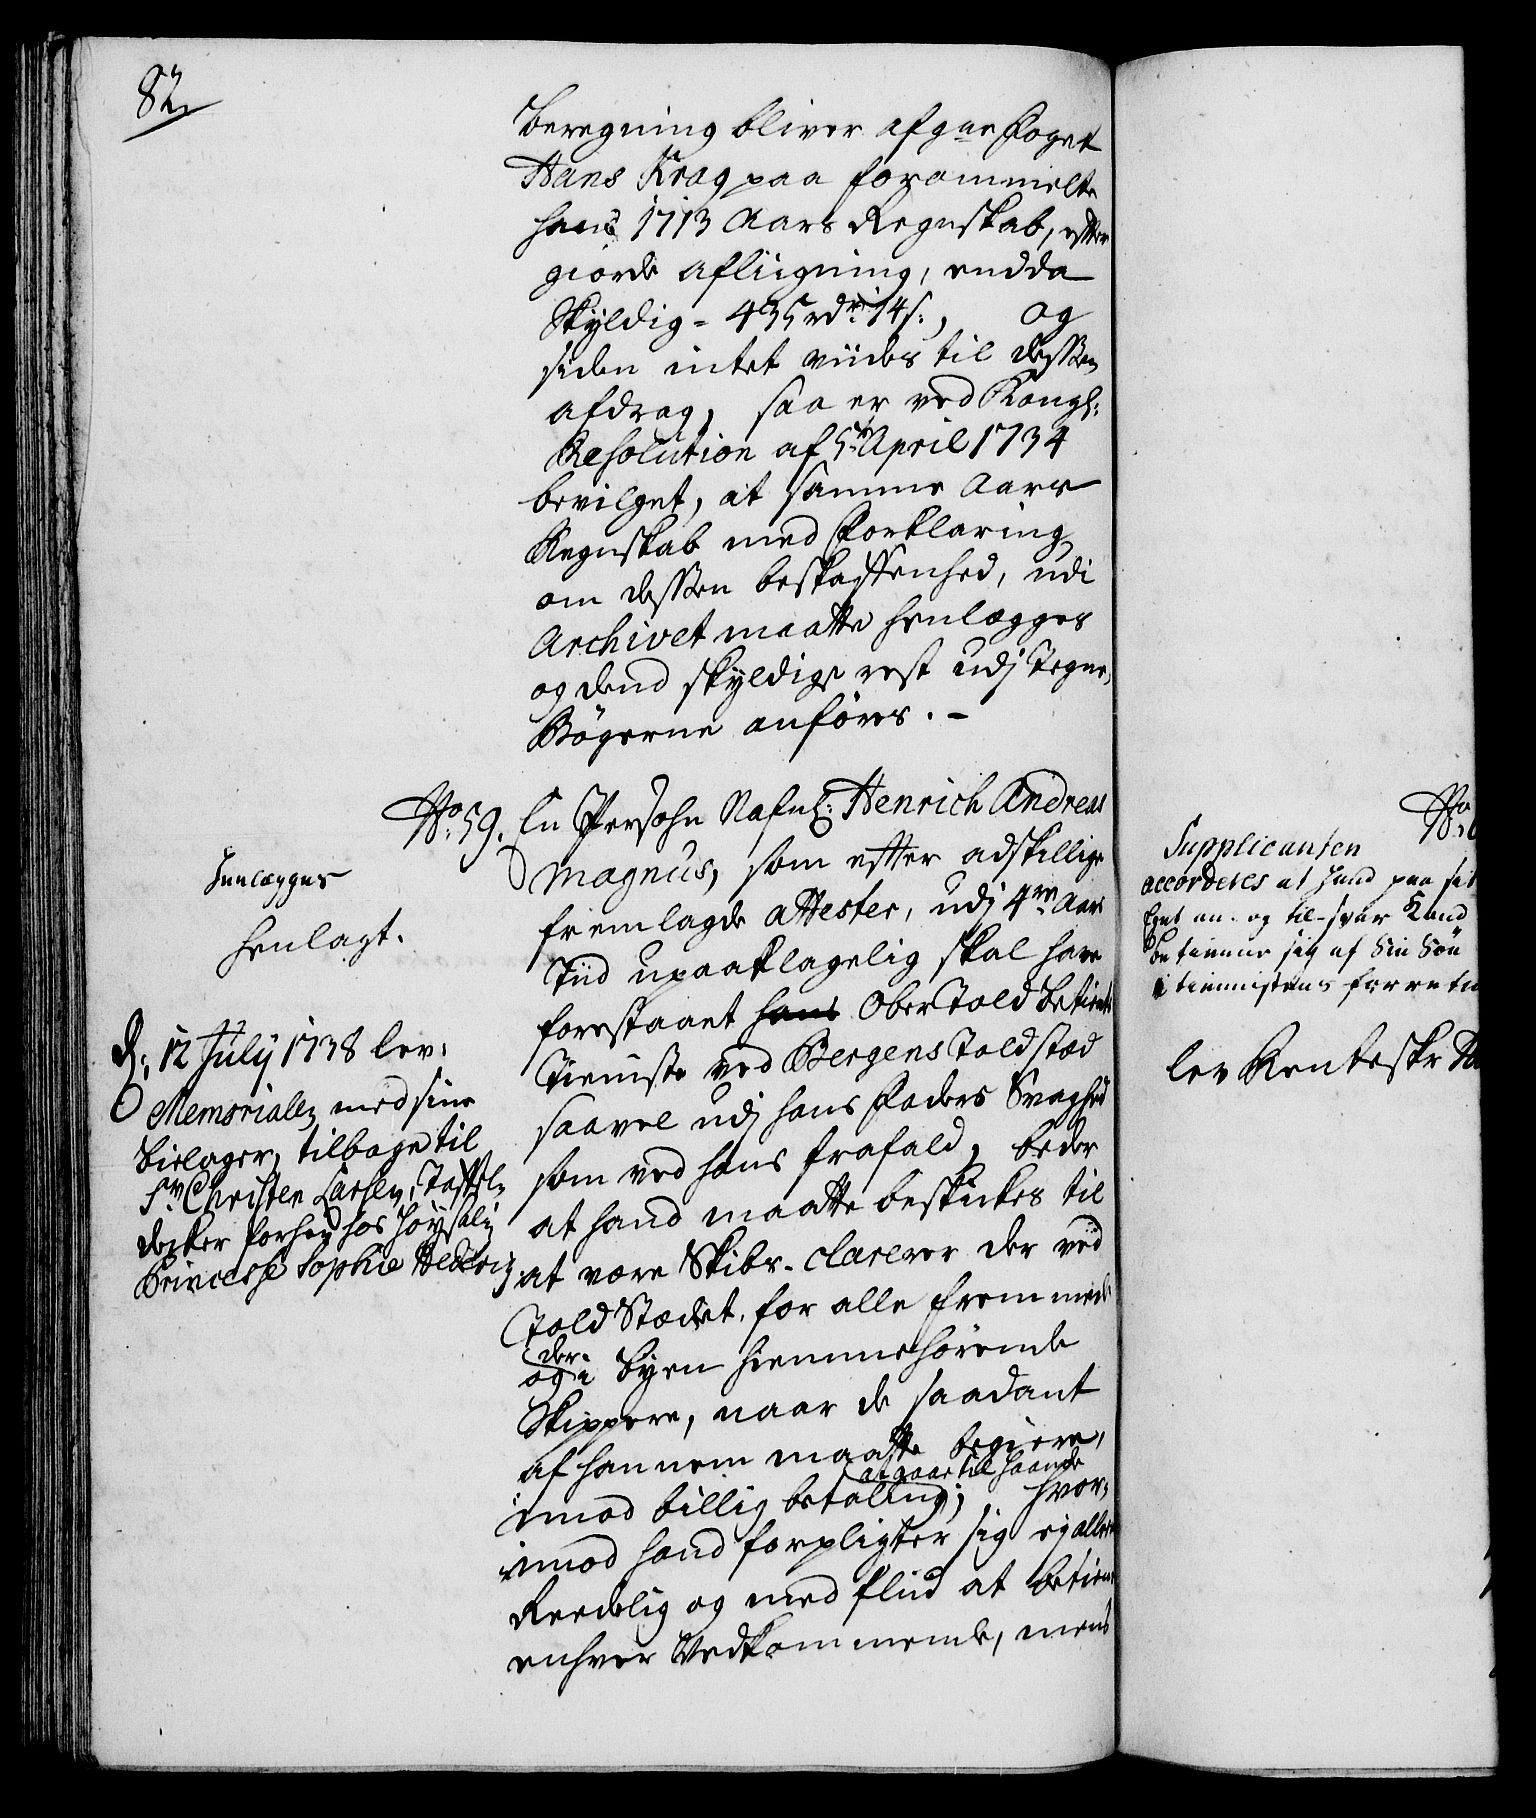 82.
beregning bliver afgne Foget
Hans Krag paa forommelte
hans 1713 Aars Regnskab, efter
giorde afliigning, endda
Skyldig = 435 rdr: 14 s:, og
siden intet viides til dessen
afdrag, saa er ved Kongl:
Resolution af 5: April 1734
bevilget, at samme Aars
Regnskab med Forklaring
om dessen beskaffenhed, udi
Archivet maatte henlægges
og dend skyldige rest udj Tegne-
Bøgerne anføres. -
No: 59. En Persohn Nafnl: Henrich Andreas
Magnus, som efter adskillige
fremlagde attester, udj 4re Aars
Tiid upaaklagelig skal have
forestaaet hans Ober Told betients
Tieniste ved Bergens Toldstæd
saavel udj hans Faders Svaghed
som ved hans frafald, beder
at hand maatte beskikkes til
at være Skibs-Clarerer der ved
Told Stædet, for alle fremmede
og der i Byen hiemmehørende
Skippere, naar de saadant
af hannem maatte begiere,
imod billig betaling; at gaae til haande, hvor-
imod hand forpligter sig ej alleene
Reedelig og med fliid at betiene
enhver Vedkommende, mens
Henlægges
henlagt.
d: 12 July 1738 lev:
Memorialen med sine
bielager, tilbage til
Sr. Christen Larsen, Taffel-
decker forhen hos høysalig
Princesse Sophie Hedevig.
No:
Supplicanten
accorderes at hand paa sit
Eget an- og til-svar Kand
betienne sig af Sin Søn
i tiennistens forretn
lev Renteskr